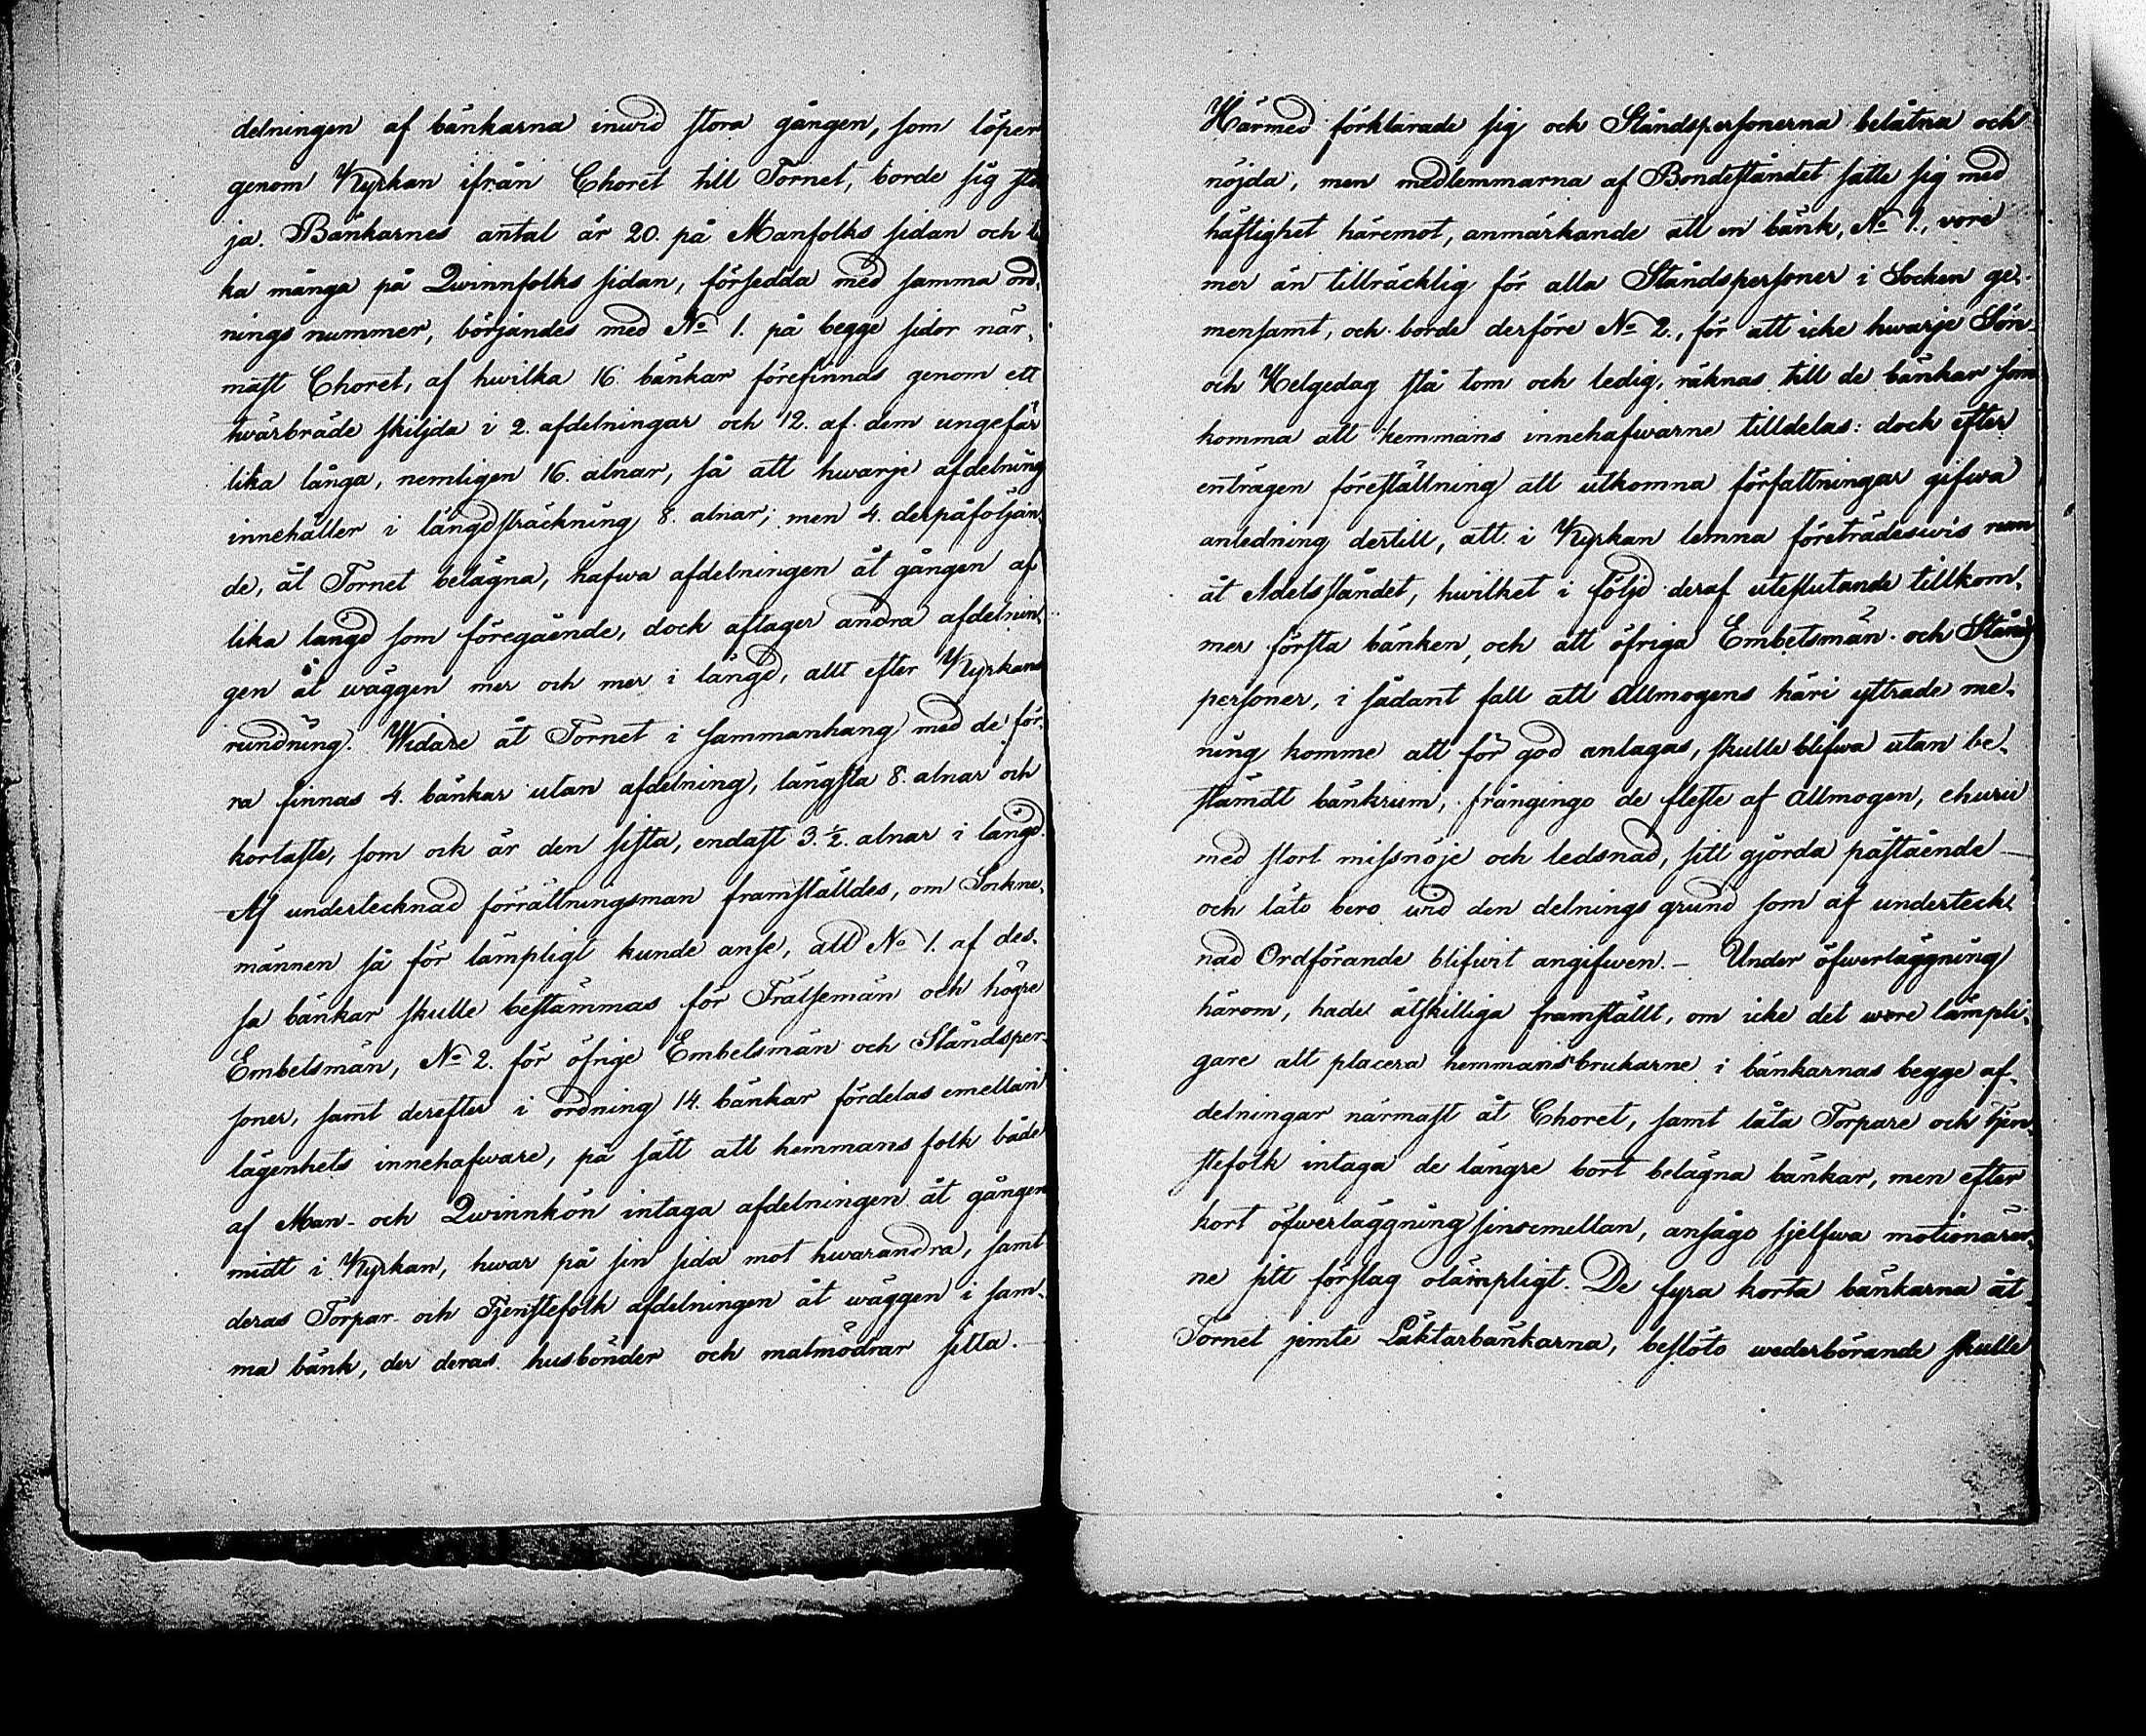 delningen af bänkarna inwid stora gången, som löper
genom Kyrkan ifrån Choret till Tornet, borde sig
ja. Bänkarnes antal är 20. på Manfolks sidan och
ka många på Qwinnfolks sidan, försedda med samma ord,
nings nummer, börjandes med No 1. på begge sidor när,
mast Choret, af hwilka 16. bänkar förefinnas genom ett
twärbräde skiljda i 2. afdelningar och 12. af dem ungefär
lika långa, nemligen 16. alnar, så att hwarje afdelning
innehåller i längdsträckning 8. alnar; men 4. derpåföljan,
de, åt Tornet belägna, hafwa afdelningen åt gången af
lika längd som föregående, dock aftager andra afdelnin,
gen åt wäggen mer och mer i längd, allt efter Kyrkans
rundning. Widare åt Tornet i sammanhang med de för,
ra finnas 4. bänkar utan afdelning, längsta 8. alnar och
kortaste, som ock är den sista, endast 3.½. alnar i längd.
Af undertecknad förrättningsman framställdes, om Sockne,
männen så för lämpligt kunde anse, att No 1. af des,
sa bänkar skulle bestämmas för Frälsemän och högre
Embetsmän, No 2. för öfrige Embetsmän och Ståndsper,
soner, samt derefter i ordning 14. bänkar fördelas emellan
lägenhets innehafware, på sätt att hemmans folk både
af Man- och Qwinnkön intaga afdelningen åt gången
midt i Kyrkan, hwar på sin sida mot hwarandra, samt
deras Torpar- och Tjenstefolk afdelningen åt wäggen i sam,
ma bänk, der deras husbönder och matmödrar sitta.—
Härmed förklarade sig och Ståndspersonerna belåtna och
nöjda, men medlemmarna af Bondeståndet satte sig med
häftighet häremot, anmärkande att en bänk, No 1., vore
mer än tillräcklig för alla Ståndspersoner i Socken ge,
mensamt, och borde derföre No 2., för att icke hwarje Sön-
och Helgedag stå tom och ledig, räknas till de bänkar som
komma att hemmans innehafwarne tilldelas: dock efter
enträgen föreställning att utkomna författningar gifwa
anledning dertill, att i Kyrkan lemna företrädeswis rum
åt Adelsståndet, hwilket i följd deraf uteslutande tillkom,
mer första bänken, och att öfriga Embetsmän och Stånds
personer, i sådant fall att Allmogens häri yttrade me,
ning komme att för god antagas, skulle blifwa utan be,
stämdt bänkrum, frångingo de fleste af Allmogen, ehuru
med stort missnöje och ledsnad, sitt gjorda påstående —
och läto bero wid den delnings grund som af underteck,
nad Ordförande blifwit angifwen.— Under öfwerläggning
härom, hade åtskilliga framställt, om icke det wore lämpli,
gare att placera hemmansbrukarne i bänkarnas begge af,
delningar närmast åt Choret, samt låta Torpare och Tjen,
stefolk intaga de längre bort belägna bänkar, men efter
kort öfwerläggning sinsemellan, ansågo sjelfwa motionärer,
ne sitt förslag olämpligt. De fyra korta bänkarna åt
Tornet jemte Läktarbänkarna, beslöto wederbörande skulle